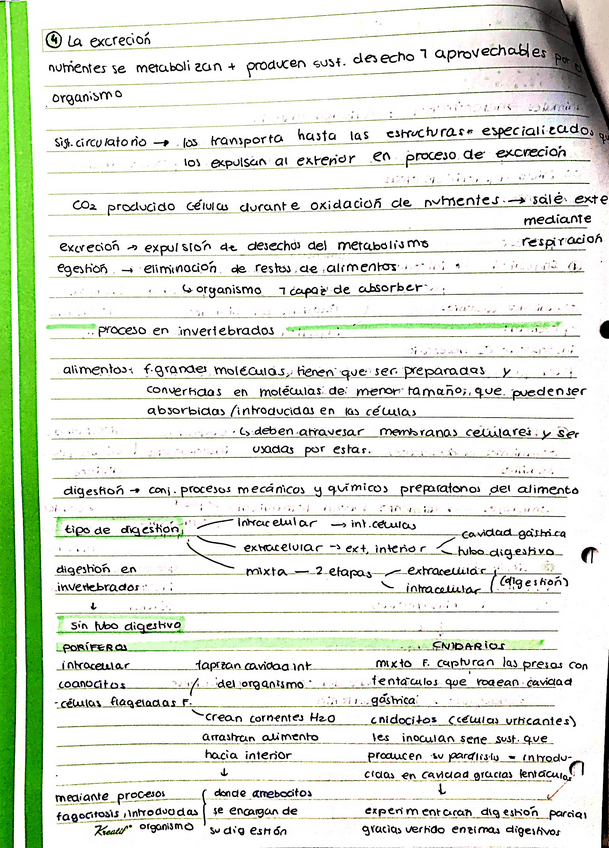 ④ La excreción
nutrientes se metabolizan + producen sust. desecho ⁊ aprovechables por el
organismo
sist. circulatorio → los transporta hasta las estructuras especializados que
los expulsan al exterior en proceso de excreción
CO2 producido células durante oxidación de nutrientes → sale exte
mediante
respiración
excreción → expulsión de desechos del metabolismo
egestión → eliminación de restos de alimentos
↳ organismo ⁊ capaz de absorber
proceso en invertebrados
alimentos: f. grandes moléculas, tienen que ser preparadas y
convertidas en moléculas de menor tamaño, que puedenser
absorbidas/introducidas en las células
↳ deben atravesar membranas celulares y ser
usadas por estas.
digestión → conj. procesos mecánicos y químicos preparatorios del alimento
tipo de digestión
intracelular → int. células
extracelular → ext. interior
cavidad gástrica
tubo digestivo
mixta — 2 etapas
extracelular
intracelular
(digestión)
digestión en
invertebrados
↓
Sin tubo digestivo
PORÍFEROS
intracelular
coanocitos
-células flageladas F.
tapizan cavidad int
del organismo
crean corrientes H2O
arrastran alimento
hacia interior
↓
mediante procesos
fagocitosis, introducidas
organismo
donde amebocitos
se encargan de
su digestión
CNIDARIOS
mixto F. capturan las presas con
tentáculos que rodean cavidad
gástrica
cnidocitos (células urticantes)
les inoculan serie sust. que
producen su parálisis = introdu-
cidas en cavidad gracias tentáculos
↓
experimentaran digestión parcial
gracias vertido enzimas digestivos
Kreatif